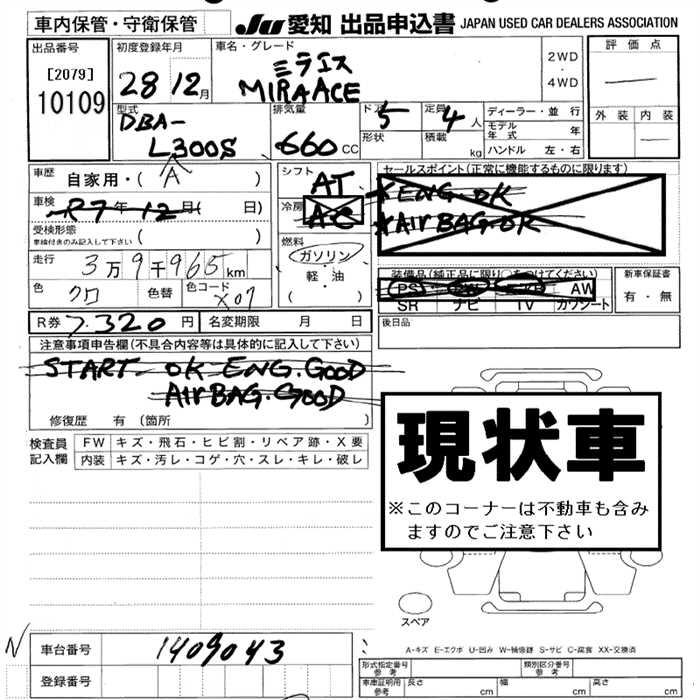 車内保管・守衛保管
JU 愛知 出品申込書 JAPAN USED CAR DEALERS ASSOCIATION
出品番号
[2079]
10109
初度登録年月
28 12月
車名・グレード
ミラエス
MIRA ACE
2WD
・
4WD
評価点
外装 内装
型式
DBA-
L300S
A
排気量
660 CC
ドア 5
形状
定員 4 人
積載 kg
ディーラー・並行
モデル年式 年
ハンドル 左・右
車歴
自家用・( )
車検
R7年12月( 日)
受検形態
車検付きのみ記入して下さい ( )
走行
3万9千965km
色
クロ
色替
色コード
X07
シフト
AT
冷房
AC
燃料
ガソリン
・
軽・油
( )
セールスポイント(正常に機能するものに限ります)
ENG OK
AIR BAG.OK
装備品(純正品に限り○をつけてください)
PS PW エアB AW
SR ナビ TV カワシート
新車保証書
有・無
後日品
R券 7.320円
名変期限 月 日
注意事項申告欄(不具合内容等は具体的に記入して下さい)
START OK ENG.GOOD
AIR BAG.GOOD
修復歴 有 (箇所 )
検査員
記入欄
FW キズ・飛石・ヒビ割・リペア跡・X要
内装 キズ・汚レ・コゲ・穴・スレ・キレ・破レ
現状車
※このコーナーは不動車も含み
ますのでご注意下さい
スペア
A-キズ E-エクボ U-凹み W-補修跡 S-サビ C-腐食 XX-交換済
N
車台番号
1409043
登録番号
形式指定番号
参考
類別区分番号
参考
車庫証明用
参考
長さ cm 幅 cm 高さ cm